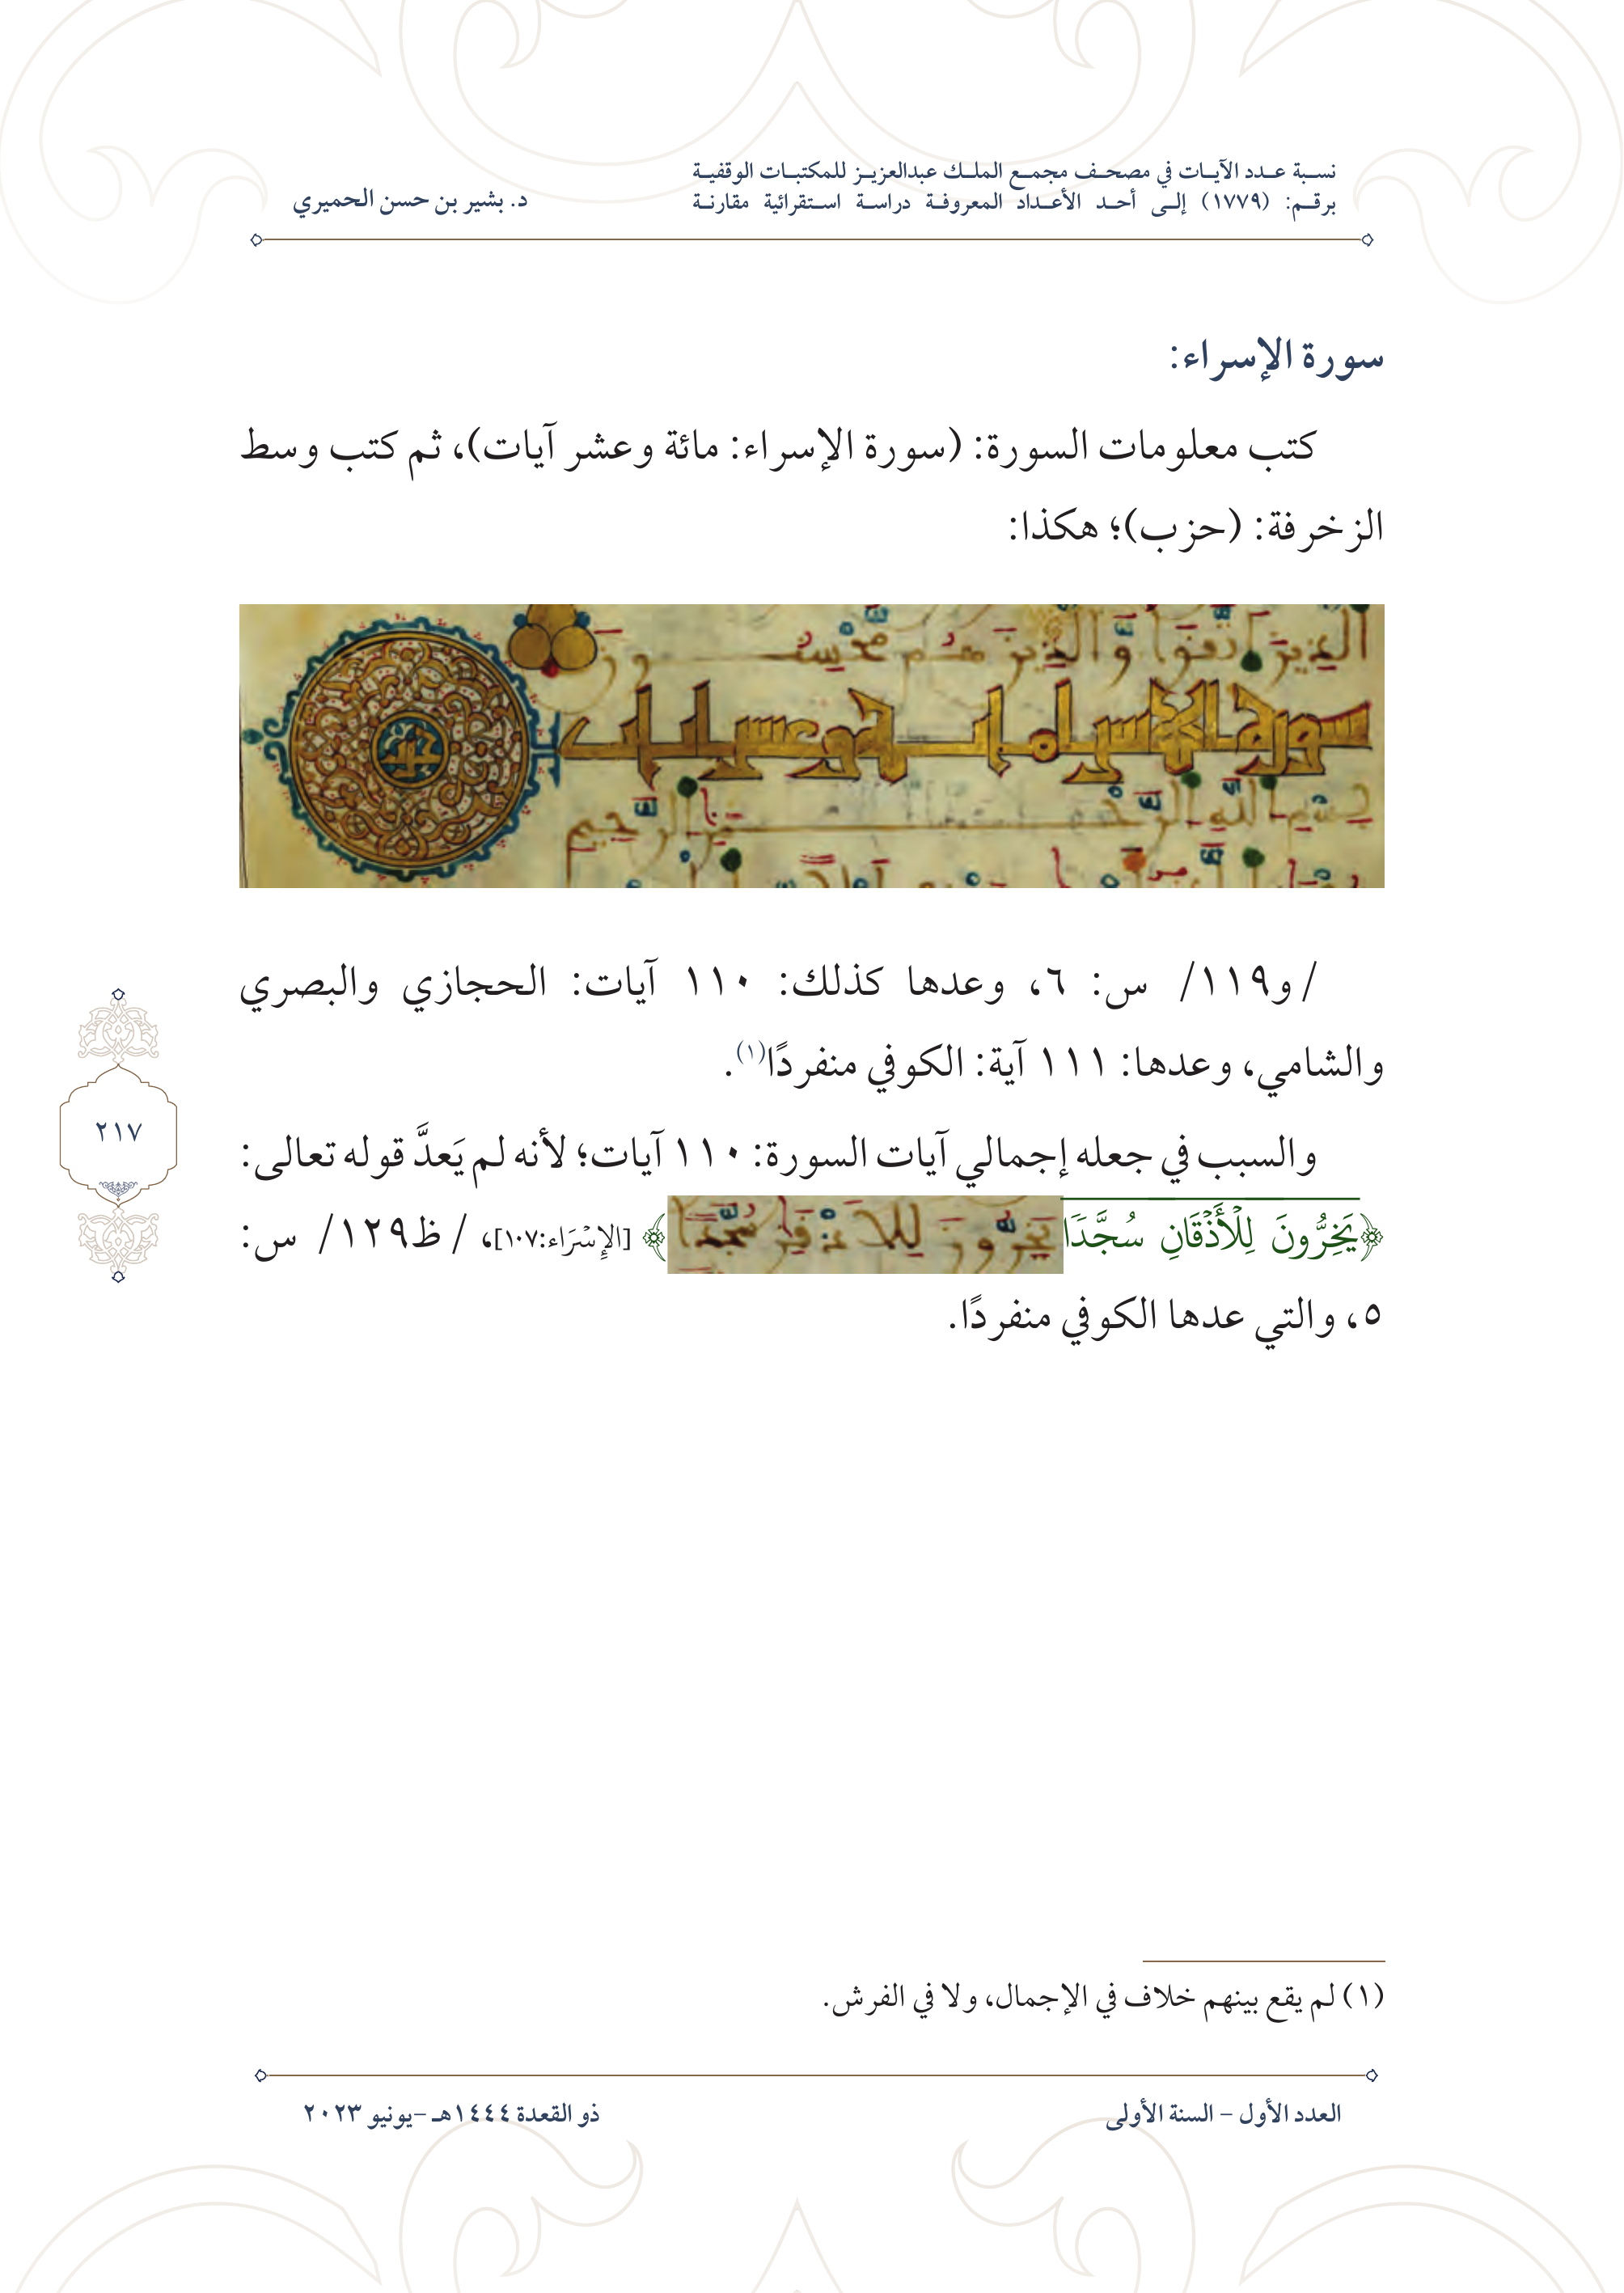 نسبة عدد الآيات في مصحف مجمع الملك عبدالعزيز للمكتبات الوقفية
برقم: (١٧٧٩) إلى أحد الأعداد المعروفة دراسة استقرائية مقارنة
د. بشير بن حسن الحميري
سورة الإسراء:
كتب معلومات السورة: (سورة الإسراء: مائة وعشر آيات)، ثم كتب وسط
الزخرفة: (حزب)؛ هكذا:
الذين اتقوا والذين هم محسنون
بسم الله الرحمن الرحيم
/ و١١٩/ س: ٦، وعدها كذلك: ١١٠ آيات: الحجازي والبصري
والشامي، وعدها: ١١١ آية: الكوفي منفردًا(١).
والسبب في جعله إجمالي آيات السورة: ١١٠ آيات؛ لأنه لم يَعدَّ قوله تعالى:
﴿يَخِرُّونَ لِلْأَذْقَانِ سُجَّدَا يخرون للاذقن سجدا﴾ [الإِسْرَاء:١٠٧]، / ظ١٢٩/ س:
٥، والتي عدها الكوفي منفردًا.
٢١٧
(١) لم يقع بينهم خلاف في الإجمال، ولا في الفرش.
العدد الأول – السنة الأولى
ذو القعدة ١٤٤٤هـ –يونيو ٢٠٢٣